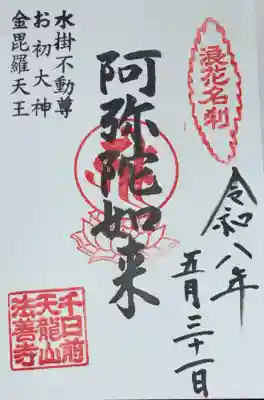 浪花名刹
令和八年
五月三十一日
阿弥陀如来
水掛不動尊
お初大神
金毘羅天王
千日前
天龍山
法善寺